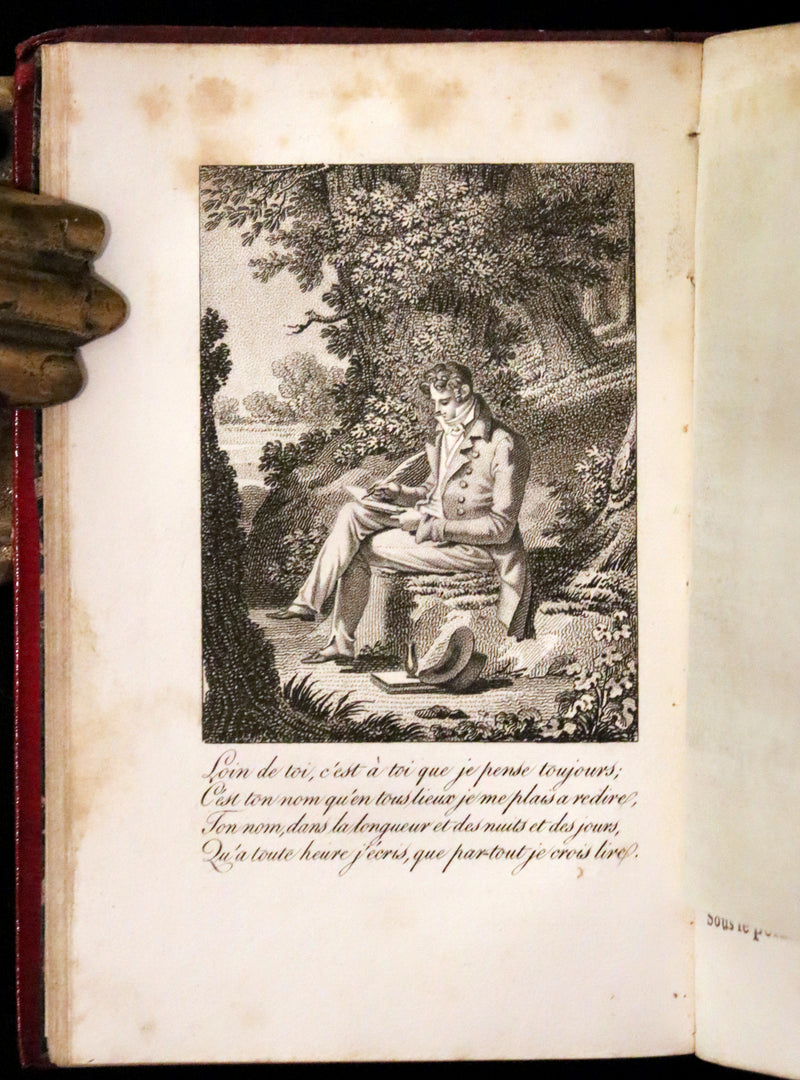 Loin de toi, c'est à toi que je pense toujours;
C'est ton nom qu'en tous lieux je me plais a redire,
Ton nom, dans la longueur et des nuits et des jours,
Qu'a toute heure j'écris, que par-tout je crois lire.
Sous le